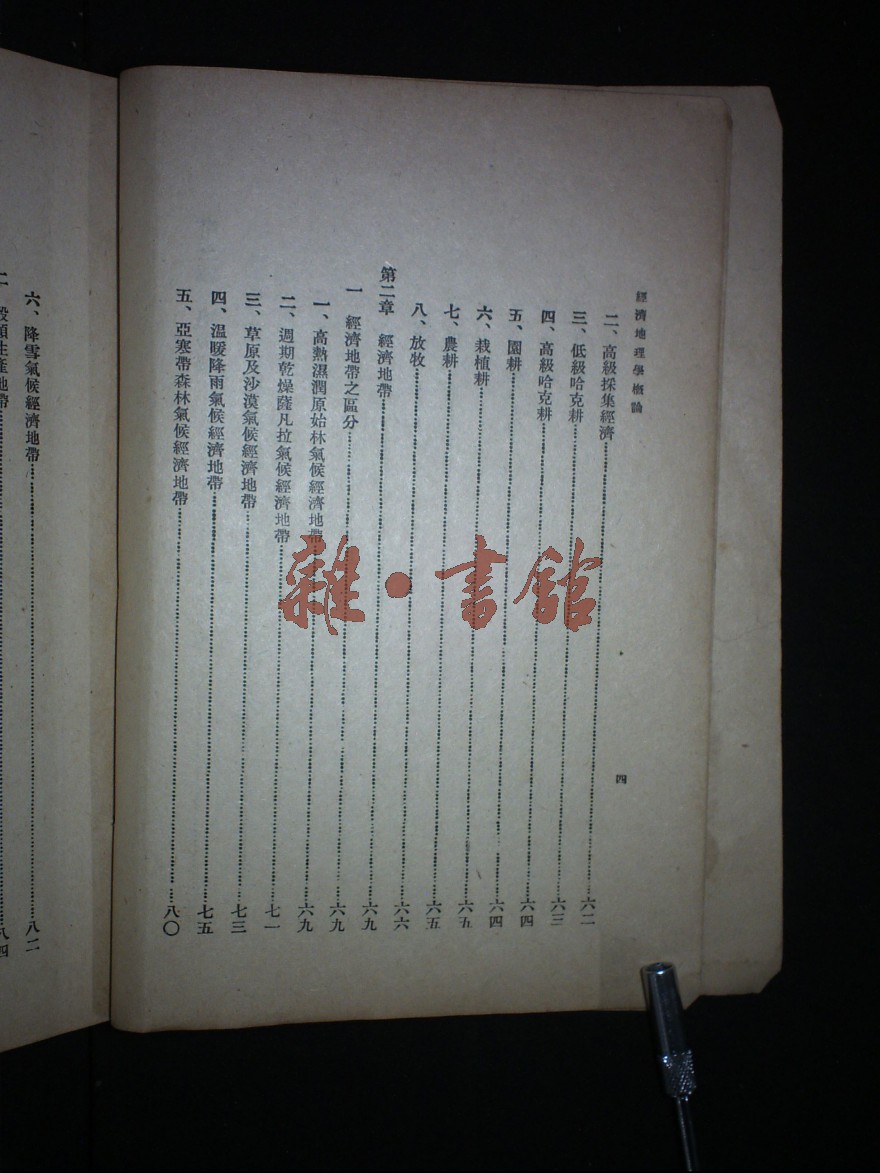 經濟地理學概論
四
二、高級採集經濟……六二
三、低級哈克耕……六三
四、高級哈克耕……六四
五、園耕……六四
六、栽植耕……六五
七、農耕……六五
八、放牧……六六
第二章 經濟地帶……六九
一 經濟地帶之區分……六九
一、高熱濕潤原始林氣候經濟地帶……六九
二、週期乾燥薩凡拉氣候經濟地帶……七一
三、草原及沙漠氣候經濟地帶……七三
四、温暖降雨氣候經濟地帶……七五
五、亞寒帶森林氣候經濟地帶……八〇
六、降雪氣候經濟地帶……八二
二 穀類生產地帶……八四
雜·書館